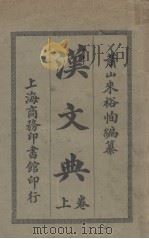 蕭山來裕恂編纂
漢文典
卷上
上海商務印書館印行